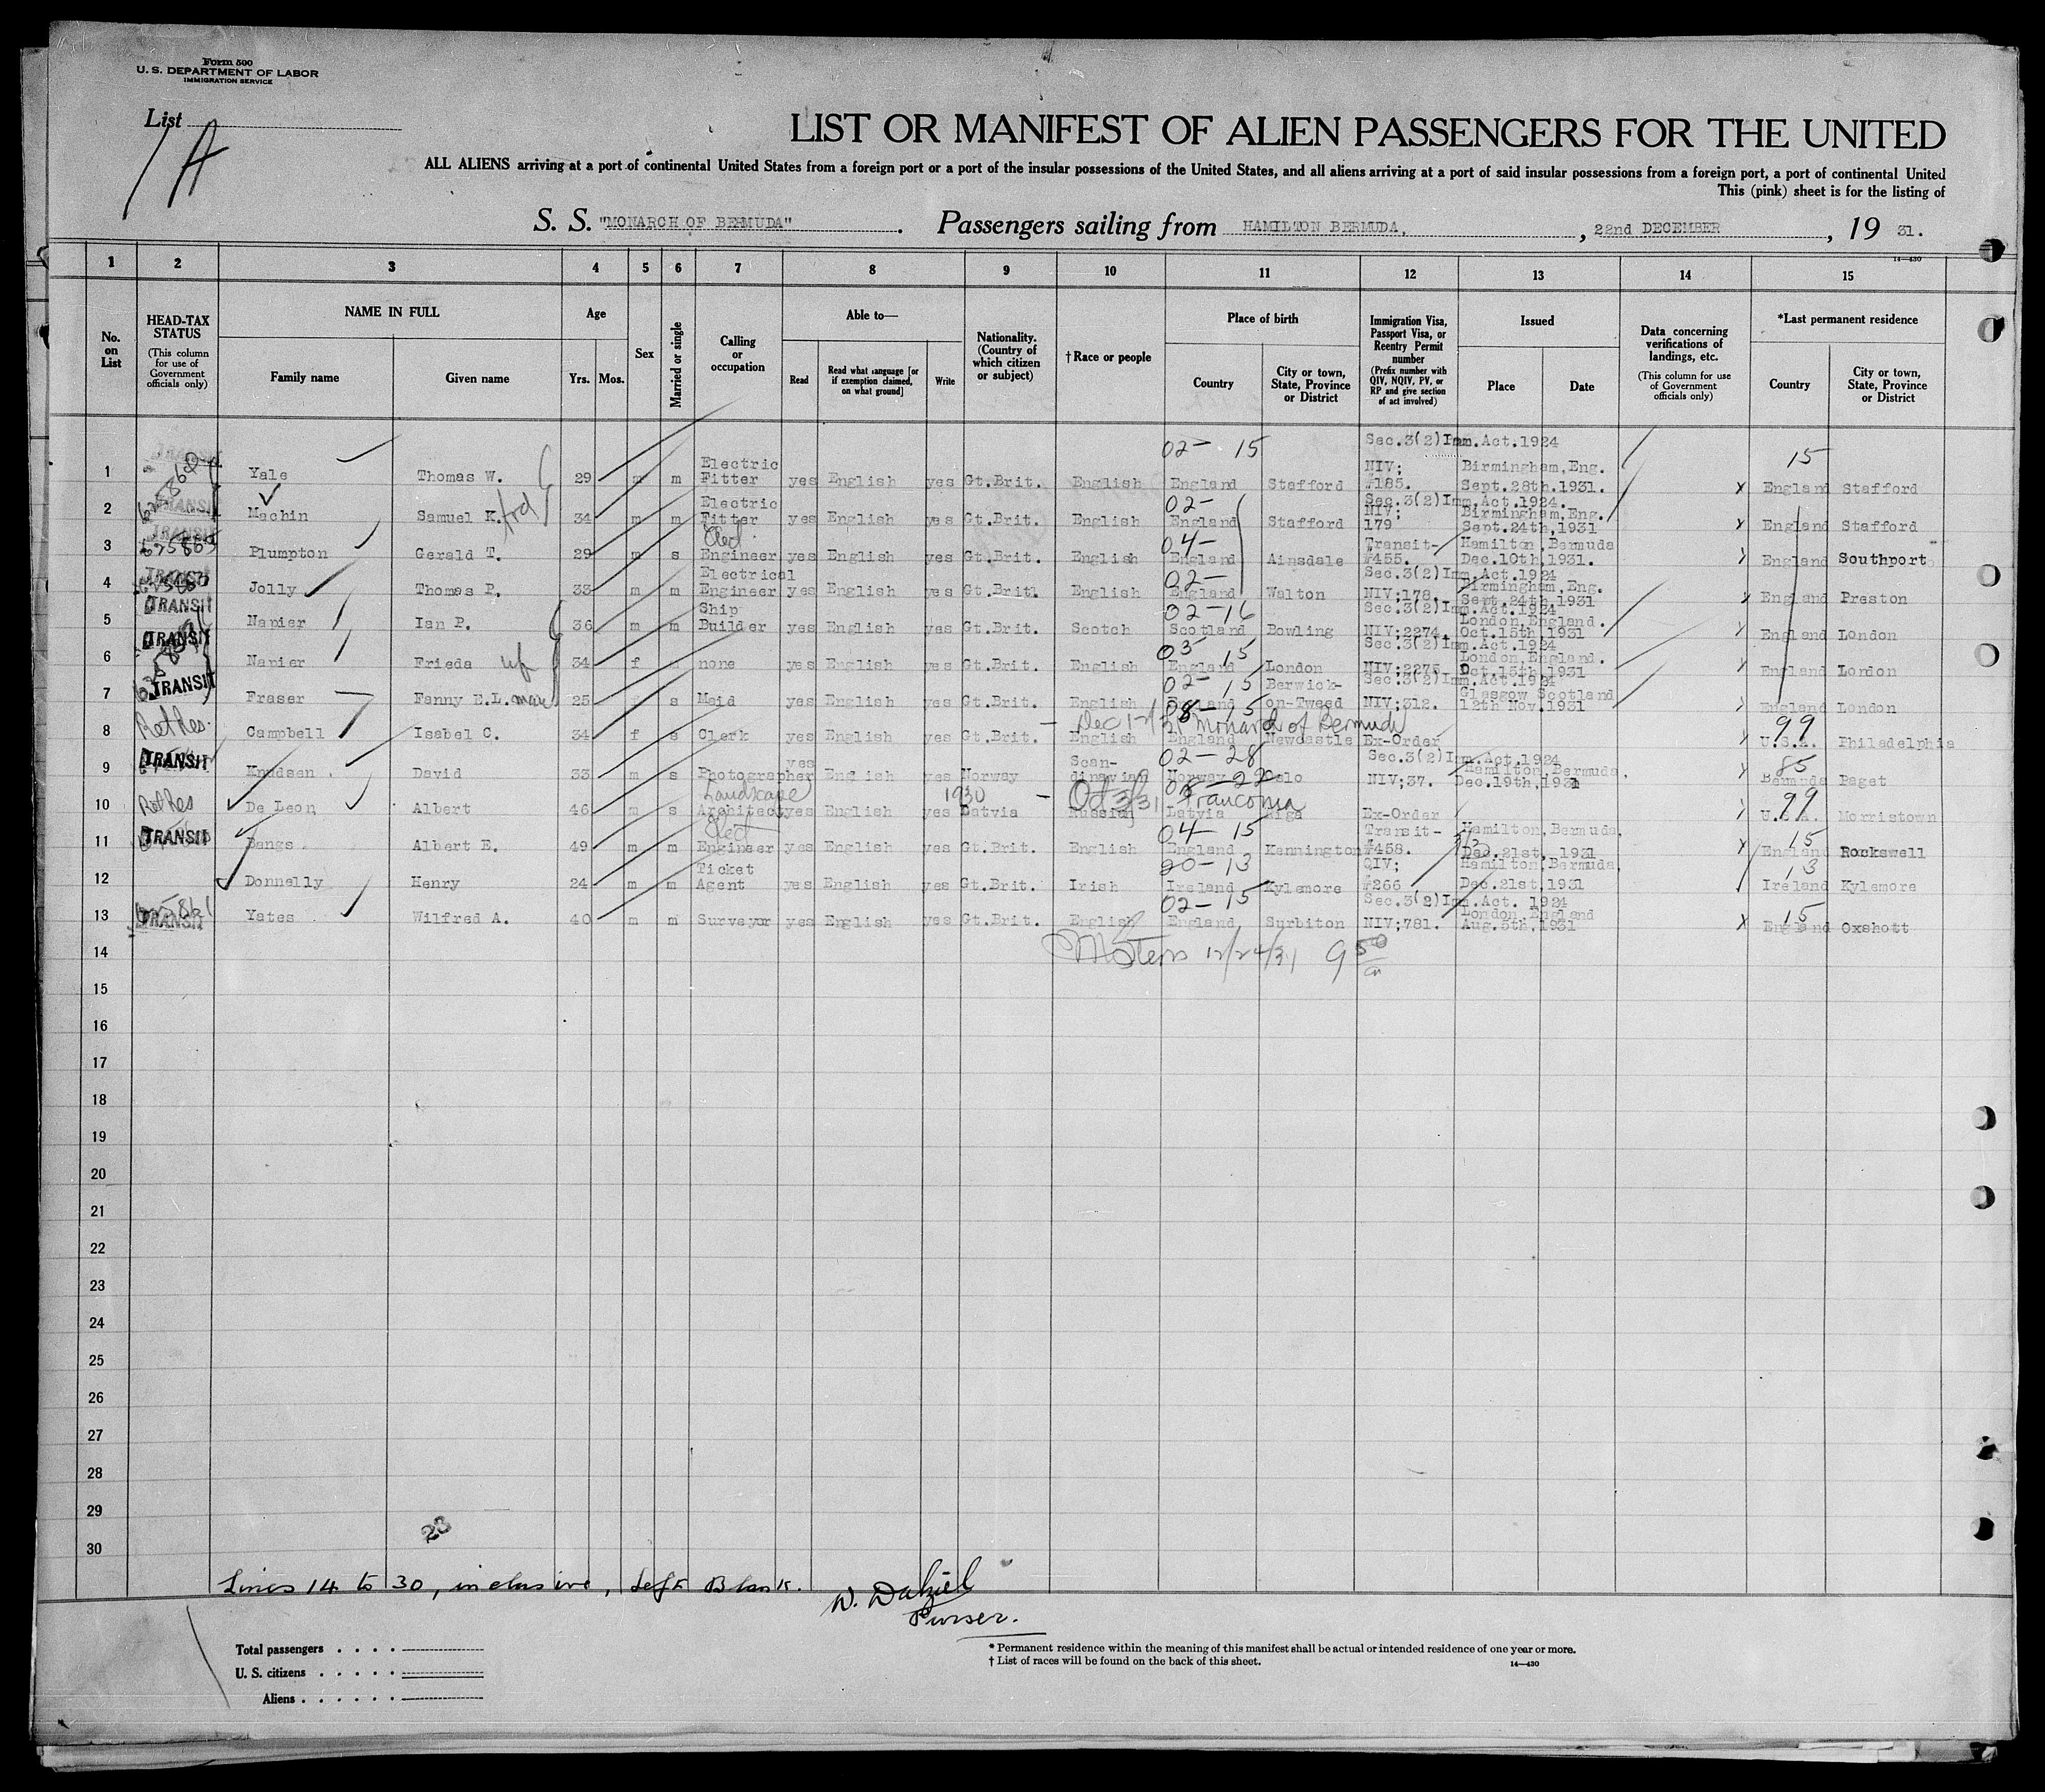 Form 500
U. S. DEPARTMENT OF LABOR
IMMIGRATION SERVICE
List
1A
LIST OR MANIFEST OF ALIEN PASSENGERS FOR THE UNITED
ALL ALIENS arriving at a port of continental United States from a foreign port or a port of the insular possessions of the United States, and all aliens arriving at a port of said insular possessions from a foreign port, a port of continental United
This (pink) sheet is for the listing of
S. S. "MONARCH OF BERMUDA". Passengers sailing from HAMILTON BERMUDA, , 22nd DECEMBER , 19 31.
14—430
1 2 3 4 5 6 7 8 9 10 11 12 13 14 15
No. on List
HEAD-TAX STATUS (This column for use of Government officials only)
NAME IN FULL
Family name Given name
Age
Yrs. Mos.
Sex
Married or single
Calling or occupation
Able to—
Read Read what language [or if exemption claimed, on what ground] Write
Nationality. (Country of which citizen or subject)
†Race or people
Place of birth
Country City or town, State, Province or District
Immigration Visa, Passport Visa, or Reentry Permit number (Prefix number with QIV, NQIV, PV, or RP and give section of act involved)
Issued
Place Date
Data concerning verifications of landings, etc. (This column for use of Government officials only)
*Last permanent residence
Country City or town, State, Province or District
02- 15 Sec.3(2)Imm.Act.1924 15
1 TRANSIT Yale Thomas W. 29 m m Electric Fitter yes English yes Gt.Brit. English England Stafford NIV; #185. Birmingham,Eng. Sept.28th.1931. x England Stafford
02- Sec.3(2)Imm.Act.1924.
2 TRANSIT Machin Samuel K. 34 m m Electric Fitter yes English yes Gt.Brit. English England Stafford NIV; 179 Birmingham,Eng. Sept.24th,1931 x England Stafford
04-
3 TRANSIT Plumpton Gerald T. 29 m s Elec. Engineer yes English yes Gt.Brit. English England Ainsdale Transit- #455. Hamilton,Bermuda Dec.10th,1931. England Southport
02- Sec.3(2)Imm.Act.1924
4 TRANSIT Jolly Thomas P. 33 m m Electrical Engineer yes English yes Gt.Brit. English England Walton NIV;178. Birmingham,Eng. Sept.24th,1931 England Preston
02-16 Sec.3(2)Imm.Act.1924
5 TRANSIT Napier Ian P. 36 m m Ship Builder yes English yes Gt.Brit. Scotch Scotland Bowling NIV;2274. London,England. Oct.15th,1931 England London
03 15 Sec.3(2)Imm.Act.1924
6 TRANSIT Napier Frieda wf 34 f none yes English yes Gt.Brit. English England London NIV;2275. London,England. Oct.15th,1931 England London
02- 15 Sec.3(2)Imm.Act.1924
7 TRANSIT Fraser Fanny E.L. 25 s Maid yes English yes Gt.Brit. English England Berwick-on-Tweed NIV;312. Glasgow Scotland 12th Nov.1931 England London
Dec 12/31 Monarch of Bermuda 08-15 99
8 Campbell Isabel C. 34 f s Clerk yes English yes Gt.Brit. English England Newcastle Ex-Order U.S.A. Philadelphia
02-28 Sec.3(2)Imm.Act.1924 85
9 TRANSIT Knudsen David 33 m s Photographer yes English yes Norway Scan-dinavian Norway Oslo NIV;37. Hamilton,Bermuda, Dec.19th,1931 Bermuda Paget
1930 - Oct 3/31 Franconia 99
10 De Leon Albert 46 m s Landscape Architect yes English yes Latvia Russian Latvia Riga Ex-Order U.S.A. Morristown
04- 15 15
11 TRANSIT Bangs Albert E. 49 m m Elect Engineer yes English yes Gt.Brit. English England Kennington Transit- #458. Hamilton,Bermuda, Dec.21st, 1931 x England Rockswell
20-13 13
12 Donnelly Henry 24 m m Ticket Agent yes English yes Gt.Brit. Irish Ireland Kylemore QIV; #266 Hamilton,Bermuda, Dec.21st,1931 Ireland Kylemore
02-15 Sec.3(2)Imm.Act. 1924 15
13 TRANSIT Yates Wilfred A. 40 m m Surveyor yes English yes Gt.Brit. English England Surbiton NIV;781. London,England Aug.5th,1931 x England Oxshott
12/24/31 9 50
14
15
16
17
18
19
20
21
22
23
24
25
26
27
28
29
30
23
Lines 14 to 30, inclusive, Left Blank.
W. Dalziel
Purser.
Total passengers
U. S. citizens
Aliens
* Permanent residence within the meaning of this manifest shall be actual or intended residence of one year or more.
† List of races will be found on the back of this sheet.
14—430